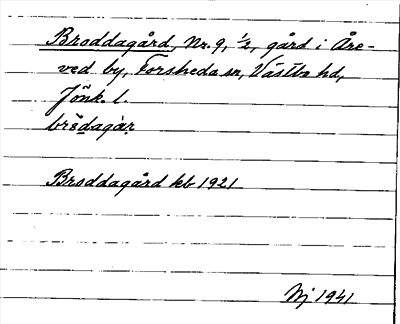 Broddagård, Nr. 9, ½, gård i Åre-
ved by, Forsheda sn, Västbo hd,
Jönk. l.
Broddagård kb 1921
Nj 1941